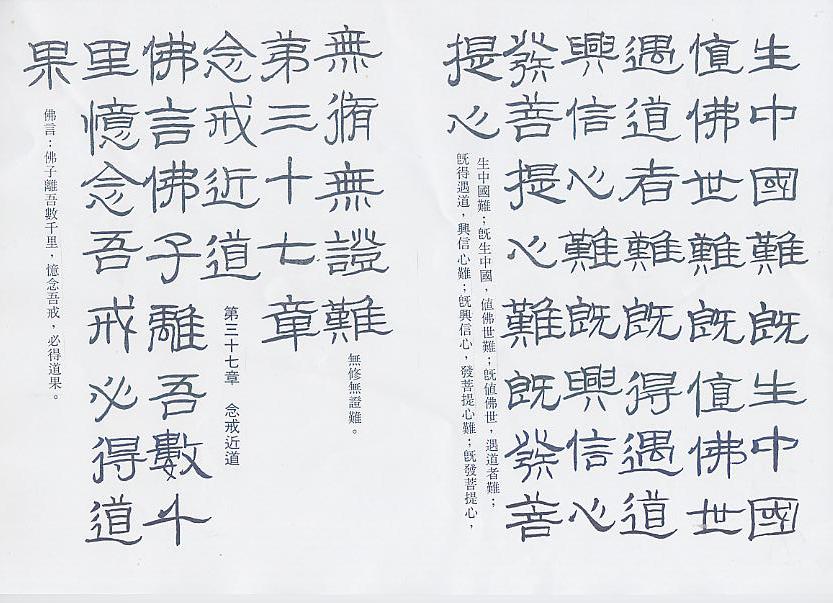 生中國難既生中國
值佛世難既值佛世
遇道者難既得遇道
興信心難既興信心
發菩提心難既發菩
提心
生中國難；既生中國，值佛世難；既值佛世，遇道者難；
既得遇道，興信心難；既興信心，發菩提心難；既發菩提心，
無脩無證難
無修無證難。
第三十七章
念戒近道
第三十七章　念戒近道
佛言佛子離吾數千
里憶念吾戒必得道
果
佛言：佛子離吾數千里，憶念吾戒，必得道果。